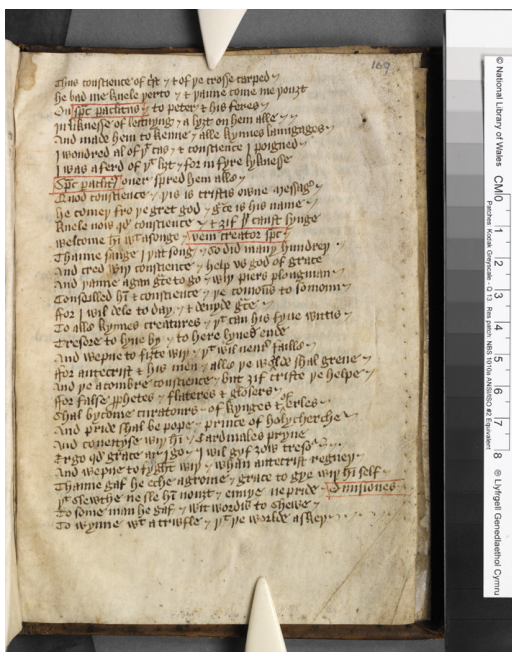 169
Thus conscience of cͥst / & of þe crosse carped /
He bad me knele þerto / & þanne come me þouȝt
On spc paclitus / to peter & his feres /
In liknesse of lettnyng / a lyȝt on hem alle /
And made hem to kenne / alle kynnes langages /
I wondred al of þͭ cas / & conscience I poigned /
I was aferd of þͭ lyȝt / for in fyre lyknesse
Spc paclitꝰ ouer spred hem alle /
Quod conscience / þis is cristis owne messagͬ /
He comeþ fro þe gret god / gͨce is his name /
Knele now qd conscience / & ȝif þu canst synge
Welcome hī wt a songe / veni creator spc /
Thanne sange I þat song / so did many hundred /
And cred wiþ conscience / help vs god of grace
And þanne agan gͨce to go / wiþ piers plougman
Conseilled hī & conscience / þe comons to somoun
ffor I wil dele to day / & deuyde gͨce /
To alle kynnes creatures / þͭ can his fyue wittis /
Tresore to lyue by / to here lyues ende
And wepne to fiȝte wiþ / þͭ wil neuͬ faille /
ffor antecrist & his men / alle þe worlde shal greue /
And þe acombre conscience / but ȝif criste þe helpe /
ffor false pphetes / flateres & glosers
Shal bycome curatours / of kynges & of erles
And pride shal be pope / prince of holy cherche
And coueityse wiþ hī / Cardinales pryue
Ergo qd grace ar I go / I wil gyf ȝow tresoͬ
And wepne to fyȝht wiþ / whan antecrist regneþ
Thanne gaf he eche a grome / grace to gye wiþ hī self /
þͭ slewthe ne sle hī nouȝt / enuye ne pride / Diuisiones
To some man he gaf / wit wordis to shewe /
To wynne wt a trwfle / þͭ þe worlde askeþ /
© National Library of Wales
CM 0 1 2 3 4 5 6 7 8
Patches: Kodak Greyscale - Q 13 Res patch: NBS 1010a ANSI/ISO #2 Equivalent
® Llyfrgell Genedlaethol Cymru